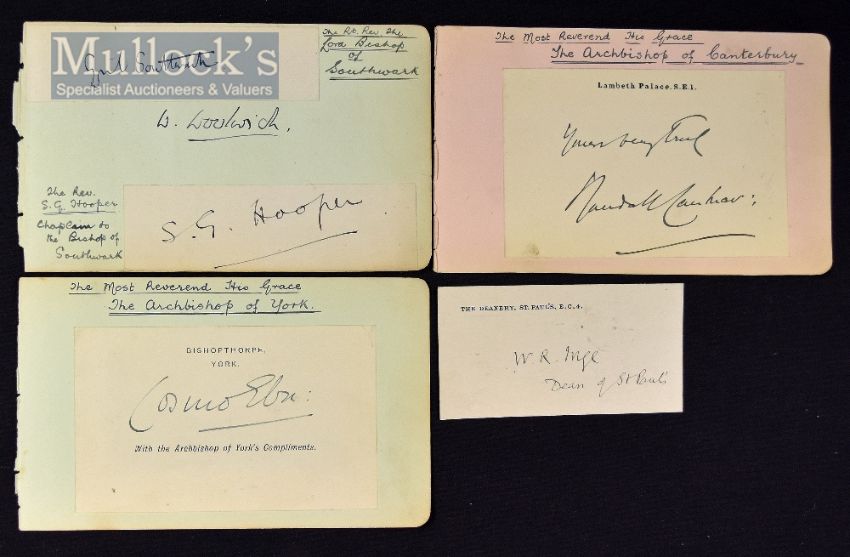 Mullock's
Specialist Auctioneers & Valuers
The Rt. Rev. The
Lord Bishop
of
Southwark
W. Woolwich.
The Rev.
S. G. Hooper
Chaplain to
the Bishop of
Southwark
S. G. Hooper
The Most Reverend His Grace
The Archbishop of Canterbury
Lambeth Palace, S.E.1.
Yours very
Randall Cantuar:
The Most Reverend His Grace
The Archbishop of York.
BISHOPTHORPE,
YORK.
Cosmo Ebor:
With the Archbishop of York's Compliments.
THE DEANERY, ST. PAUL'S, E.C.4.
W. R. Inge
Dean of St Paul's